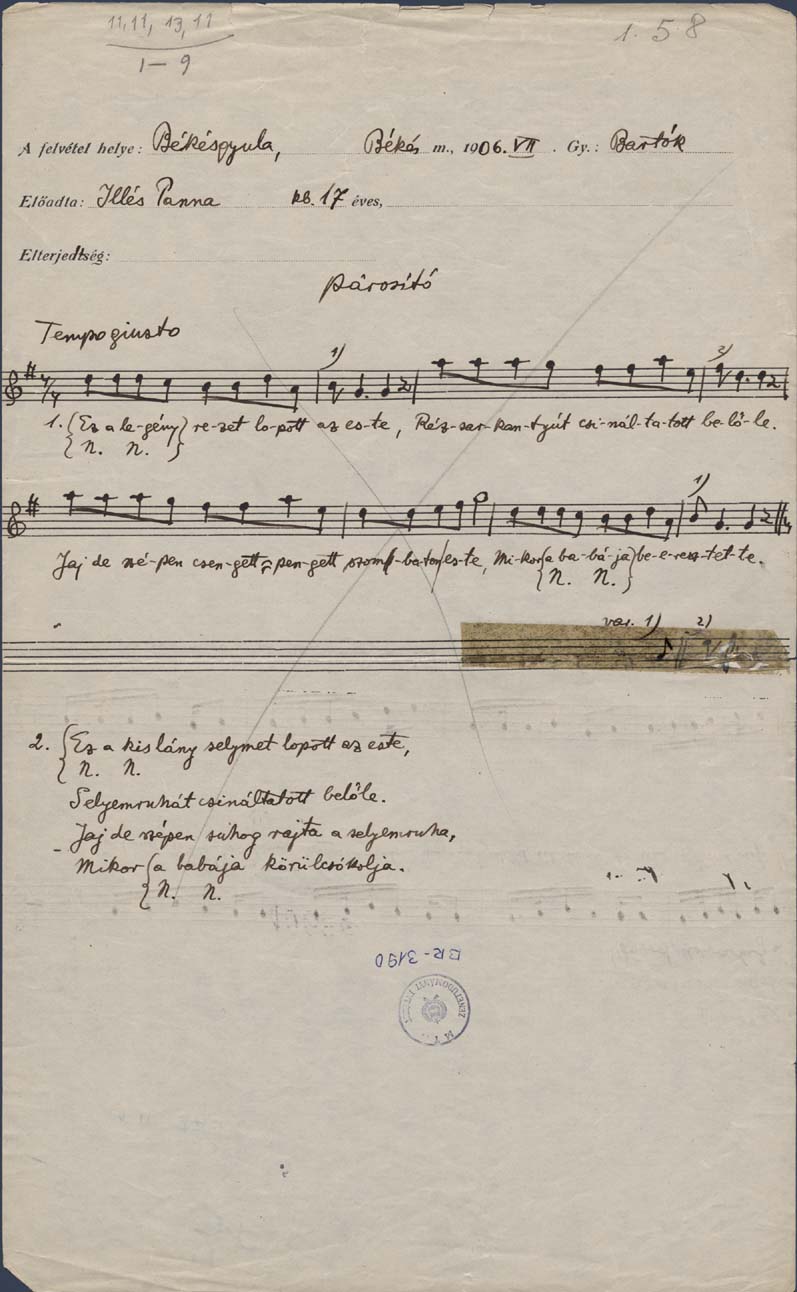 11, 11, 13, 11
1-9
1. 5 8
A felvétel helye: Békésgyula, Békés m., 1906. VII. Gy.: Bartók
Előadta: Illés Panna kb. 17 éves,
Elterjedtség:
Párosító
Tempo giusto
1) 2)
1. {Ez a le-gény} re-zet lo-pott az es-te, Réz-sar-kan-tyút csi-nál-ta-tott be-lő-le.
{N. N.}
1)
Jaj de szé-pen csen-gett-pen-gett szom-ba-ton es-te, Mi-kor {a ba-bá-ja} be-e-resz-tet-te.
{N. N.}
var. 1) 2)
2. {Ez a kis lány selymet lopott az este,
{N. N.
Selyemruhát csináltatott belőle.
Jaj de szépen suhog rajta a selyemruha,
Mikor {a babája körülcsókolja.
{N. N.
BR-3190